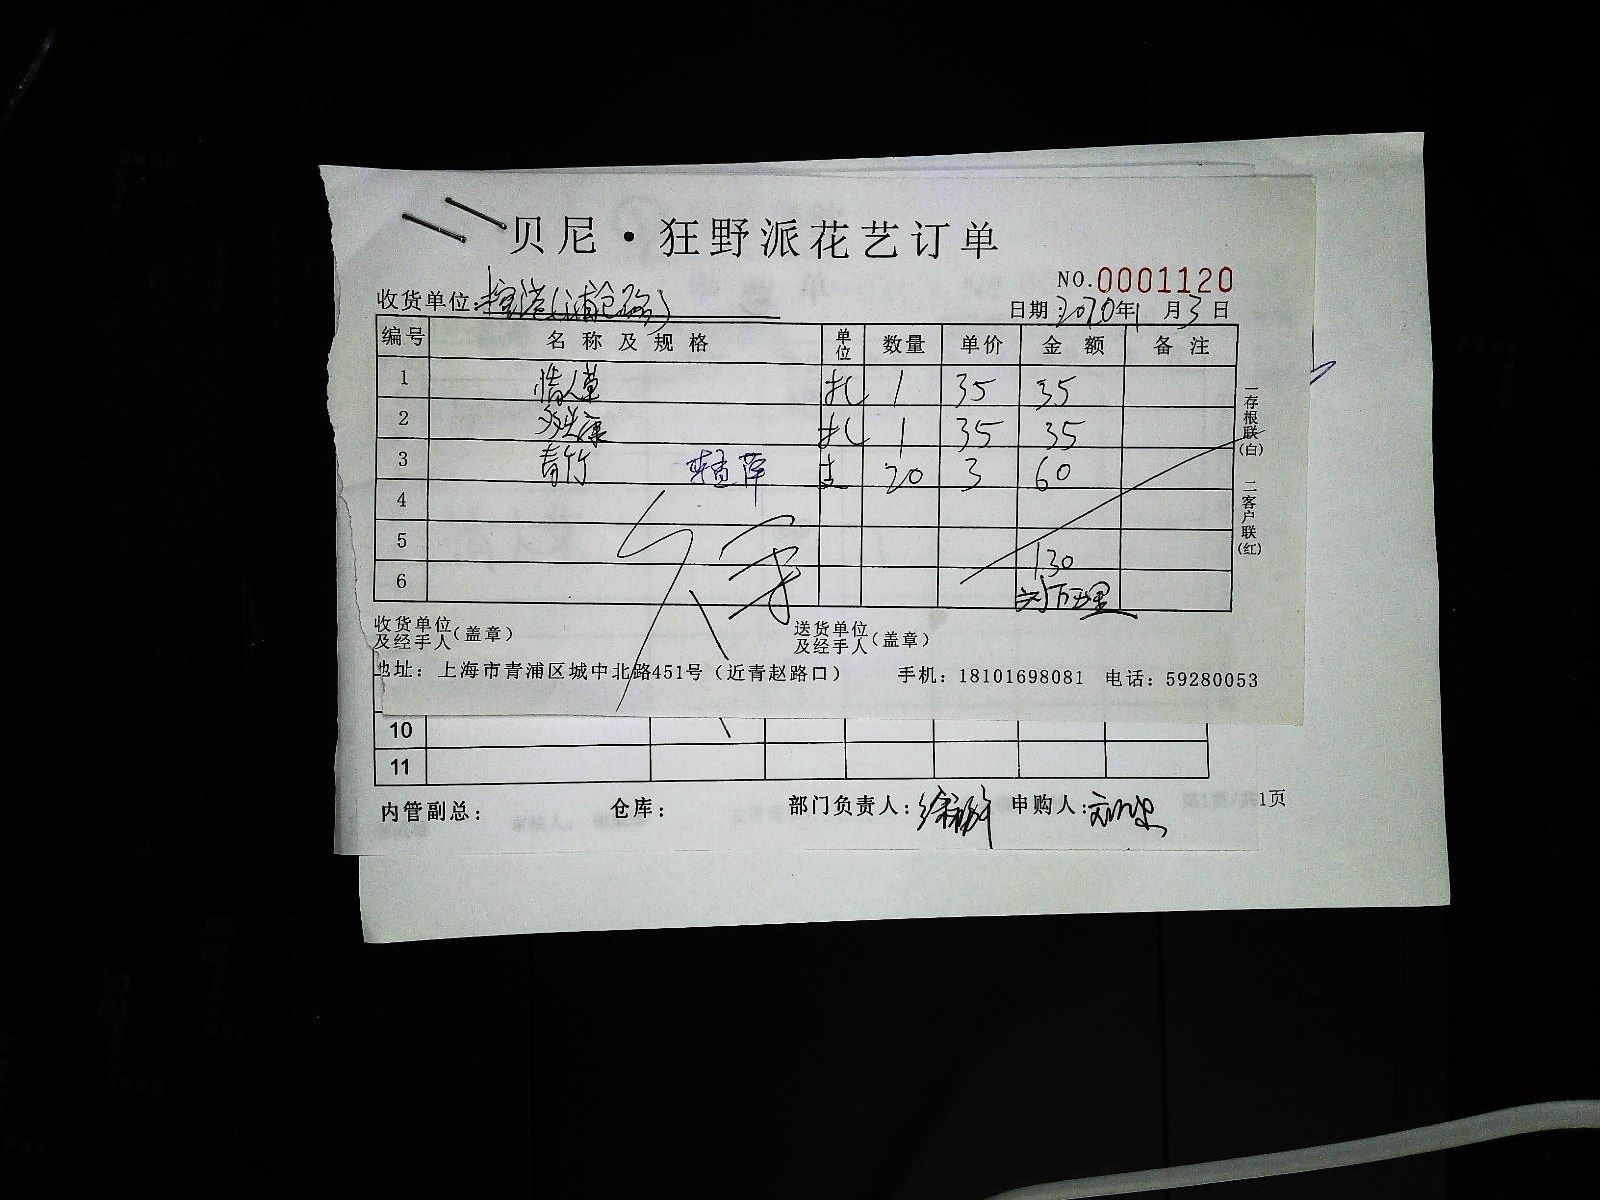 贝尼·狂野派花艺订单
NO.0001120
收货单位:
日期:2020年1月3日
编号 名称及规格 单位 数量 单价 金额 备注
1 情人草 扎 1 35 35
2 多头康 扎 1 35 35
3 青竹 支 20 3 60
4
5 130
6
一存根联(白) 二客户联(红)
收货单位及经手人(盖章) 送货单位及经手人(盖章)
地址：上海市青浦区城中北路451号（近青赵路口） 手机：18101698081 电话：59280053
10
11
内管副总： 仓库： 部门负责人： 申购人：
1页